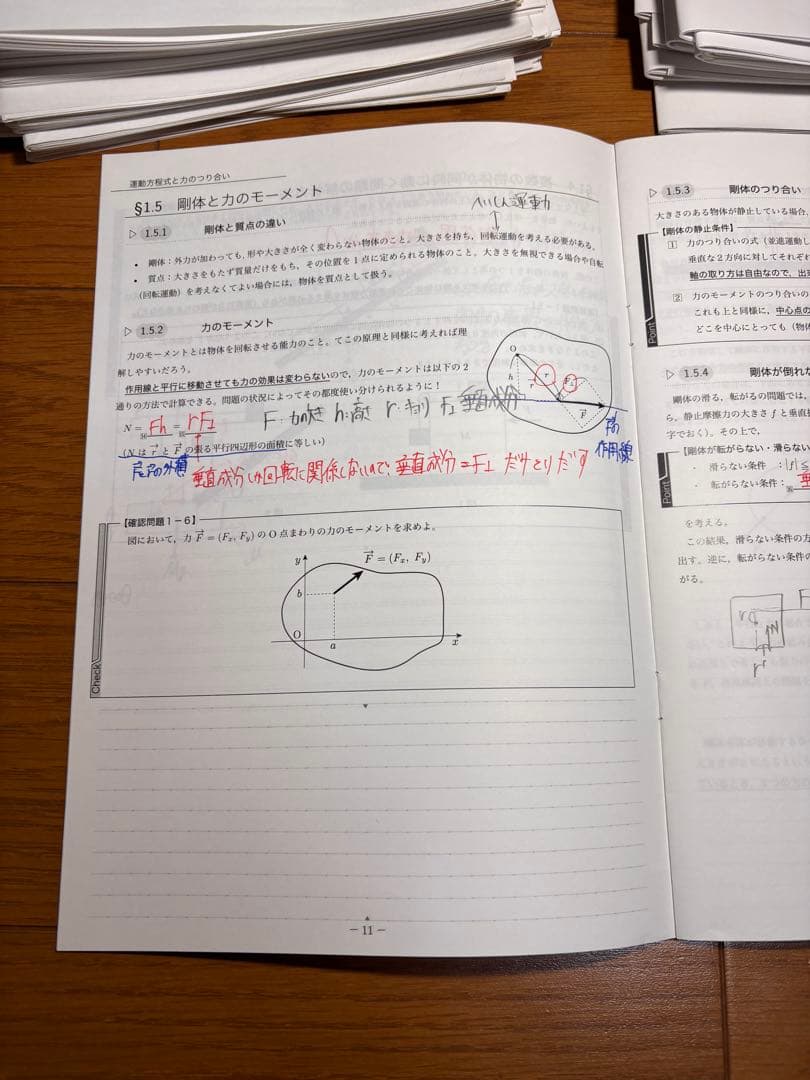 運動方程式と力のつり合い
§1.5 剛体と力のモーメント
▷ 1.5.1 剛体と質点の違い
運動
• 剛体：外力が加わっても，形や大きさが全く変わらない物体のこと。大きさを持ち，回転運動を考える必要がある。
• 質点：大きさをもたず質量だけをもち，その位置を1点に定められる物体のこと。大きさを無視できる場合や自転
（回転運動）を考えなくてよい場合には，物体を質点として扱う。
▷ 1.5.2 力のモーメント
力のモーメントとは物体を回転させる能力のこと。てこの原理と同様に考えれば理
解しやすいだろう。
作用線と平行に移動させても力の効果は変わらないので，力のモーメントは以下の2
通りの方法で計算できる。問題の状況によってその都度使い分けられるように！
O
h
r
F
F：力の大きさ h：高さ r：キョリ F⊥ 垂直成分
N = Fh = rF⊥
(N は r と F の張る平行四辺形の面積に等しい)
の外積
作用線
垂直成分しか回転に関係しないので、垂直成分=F⊥ だけとりだす
【確認問題1－6】
図において，力 F = (Fx, Fy) の O 点まわりの力のモーメントを求めよ。
y
F = (Fx, Fy)
b
O
a
x
Check
－ 11 －
▷ 1.5.3 剛体のつり合い
大きさのある物体が静止している場合，
【剛体の静止条件】
1 力のつり合いの式（並進運動し
垂直な2方向に対してそれぞれ
軸の取り方は自由なので，出来
2 力のモーメントのつり合いの
これも上と同様に，中心点の
どこを中心にとっても（物体
Point
▷ 1.5.4 剛体が倒れな
剛体の滑る，転がるの問題では，
ら，静止摩擦力の大きさ f と垂直抗
字でおく）。その上で，
【剛体が転がらない・滑らない
- 滑らない条件 ： |f| ≤
- 転がらない条件：
Point
を考える。
この結果，滑らない条件の方
出す。逆に，転がらない条件の
がる。
F
N